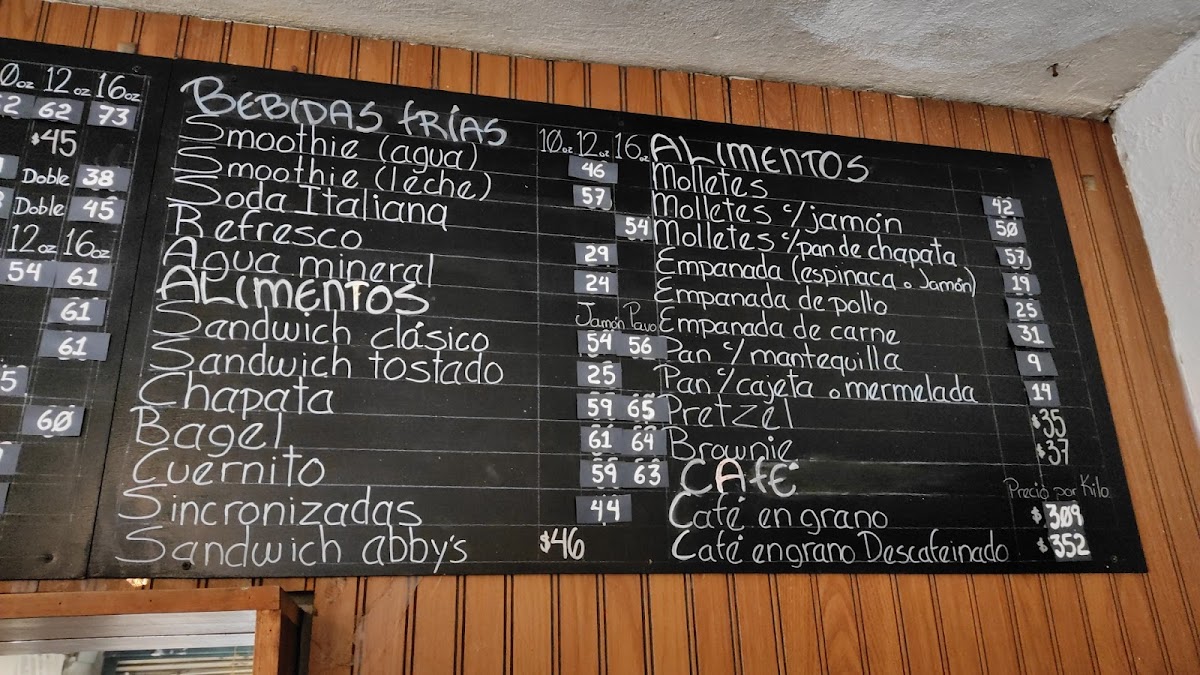 0oz 12oz 16oz
62 73
$45
Doble 38
Doble 45
12oz 16oz
54 61
61
61
5
60
BEBIDAS FRÍAS 10oz 12oz 16oz
Smoothie (agua) 46
Smoothie (leche) 57
Soda Italiana 54
Refresco 29
Agua mineral 24
ALIMENTOS Jamón Pavo
Sandwich clásico 54 56
Sandwich tostado 25
Chapata 59 65
Bagel 61 64
Cuernito 59 63
Sincronizadas 44
Sandwich abby's $46
ALIMENTOS
Molletes 42
Molletes c/jamón 50
Molletes c/pan de chapata 57
Empanada (espinaca o Jamón) 19
Empanada de pollo 25
Empanada de carne 31
Pan c/mantequilla 9
Pan c/cajeta o mermelada 14
Pretzel $35
Brownie $37
CAFÉ Precio por Kilo
Café en grano $309
Café en grano Descafeinado $352